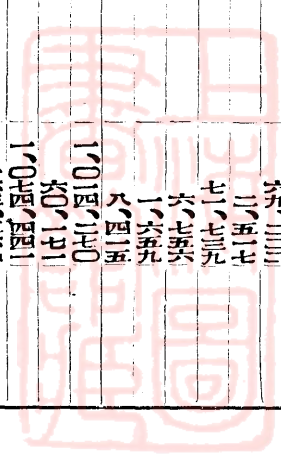 二、五一七
七一、七三九
六、七五六
一、六五九
八、四一五
一、〇一四、二七〇
六〇、一七一
一、〇七四、四四一